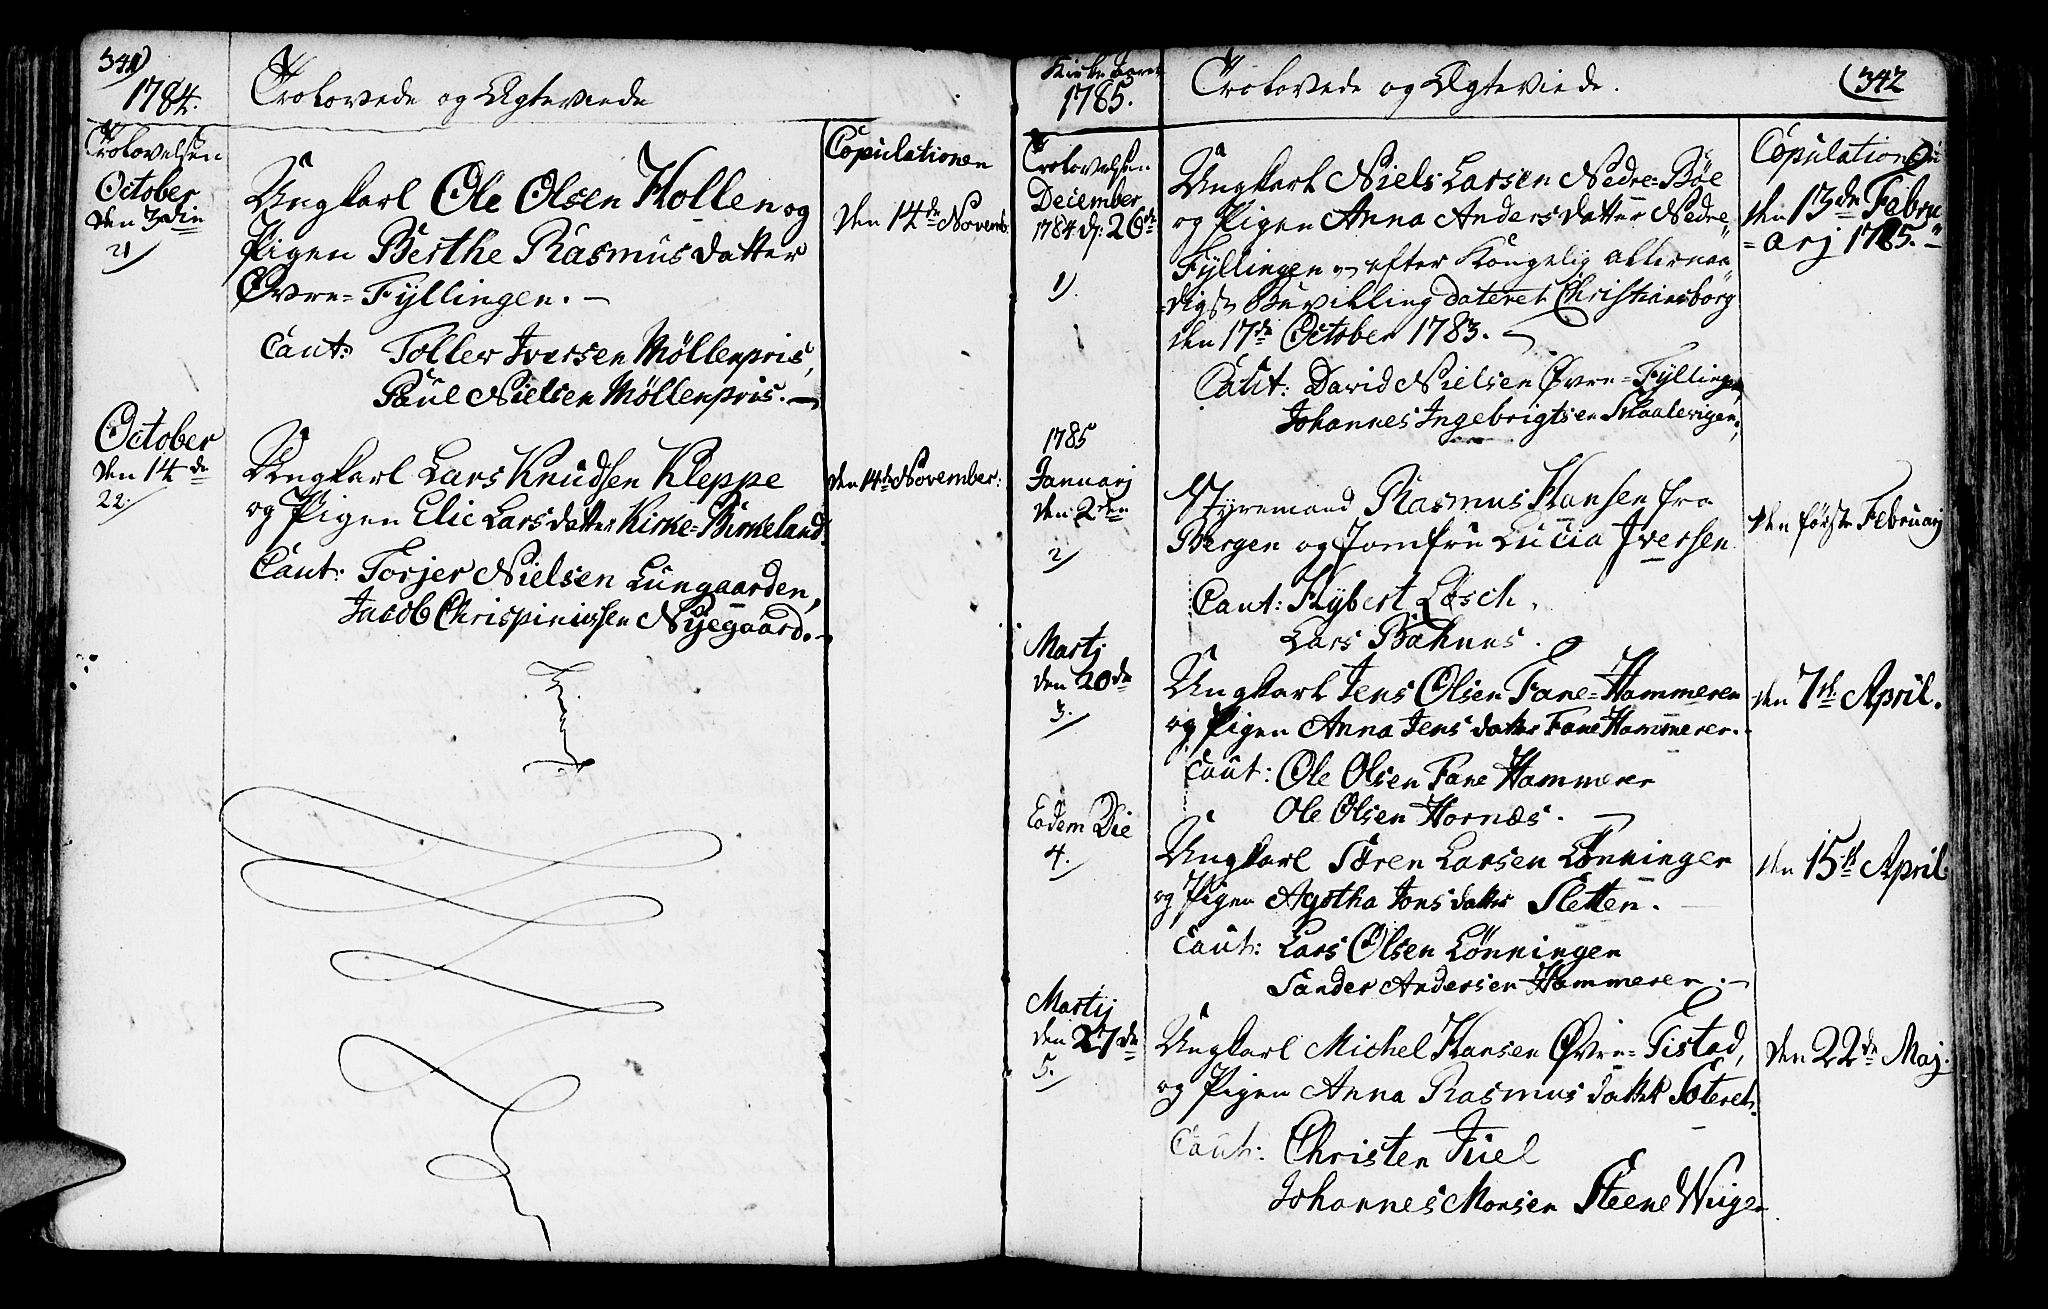 341)
1784.
Trolovede og Ægteviede
Trolovelsen
Copulationen
October
den 3die
21/
Ungkarl Ole Olsen Hollen og
Pigen Berthe Rasmusdatter
Øvre=Fyllingen. —
Caut: Toller Iversen Möllenpris,
Paul Nielsen Möllenpris. —
den 14de Novemb:
October
den 14de
22./
Ungkarl Lars Knudsen Kleppe
og Pigen Elie Larsdatter Kirke=Birkeland.
Caut: Torjer Nielsen Lungaarden,
Jacob Chrispinussen Nyegaard. —
den 14de November:
Kirke Aaret
1785.
Trolovede og Ægteviede.
(342
Trolovelsen
Copulationen
December
1784 d: 26de
1).
Ungkarl Niels Larsen Nedre=Böe
og Pigen Anna Andersdatter Nedre
Fyllingen efter Kongelig allernaa
=digst Bevilling dateret Christiansborg
den 17de October 1783. —
Caut: David Nielsen Øvre=Fyllingen,
Johannes Ingebrigtsen Skaalevigen.
den 13de Febru
=arj 1785.
1785
Januarj
den 2den
2/
Styrmand Rasmus Hansen fra
Bergen og Jomfru Lucia Iversen
Caut: Hybert Lösch.
Lars
den förste Februarj
Martj
den 20de
3./
Ungkarl Jens Olsen Fane=Hammeren
og Pigen Anna Jensdatter Fane Hammeren.
Caut: Ole Olsen Fane Hammeren
Ole Olsen Hornæs. —
den 7de April.
Eodem Die
4./
Ungkarl Sören Larsen Lönningen
og Pigen Agotha Jonsdatter Sletten. —
Caut: Lars Olsen Lönningen
Sander Andersen Hammeren. —
den 15de April.
Martij
den 27de
5./
Ungkarl Michel Hansen Øvre=Titlestad,
og Pigen Anna Rasmusdatter
Caut: Christen Juel
Johannes Monsen Steene Wiigen.
den 22de Maj.